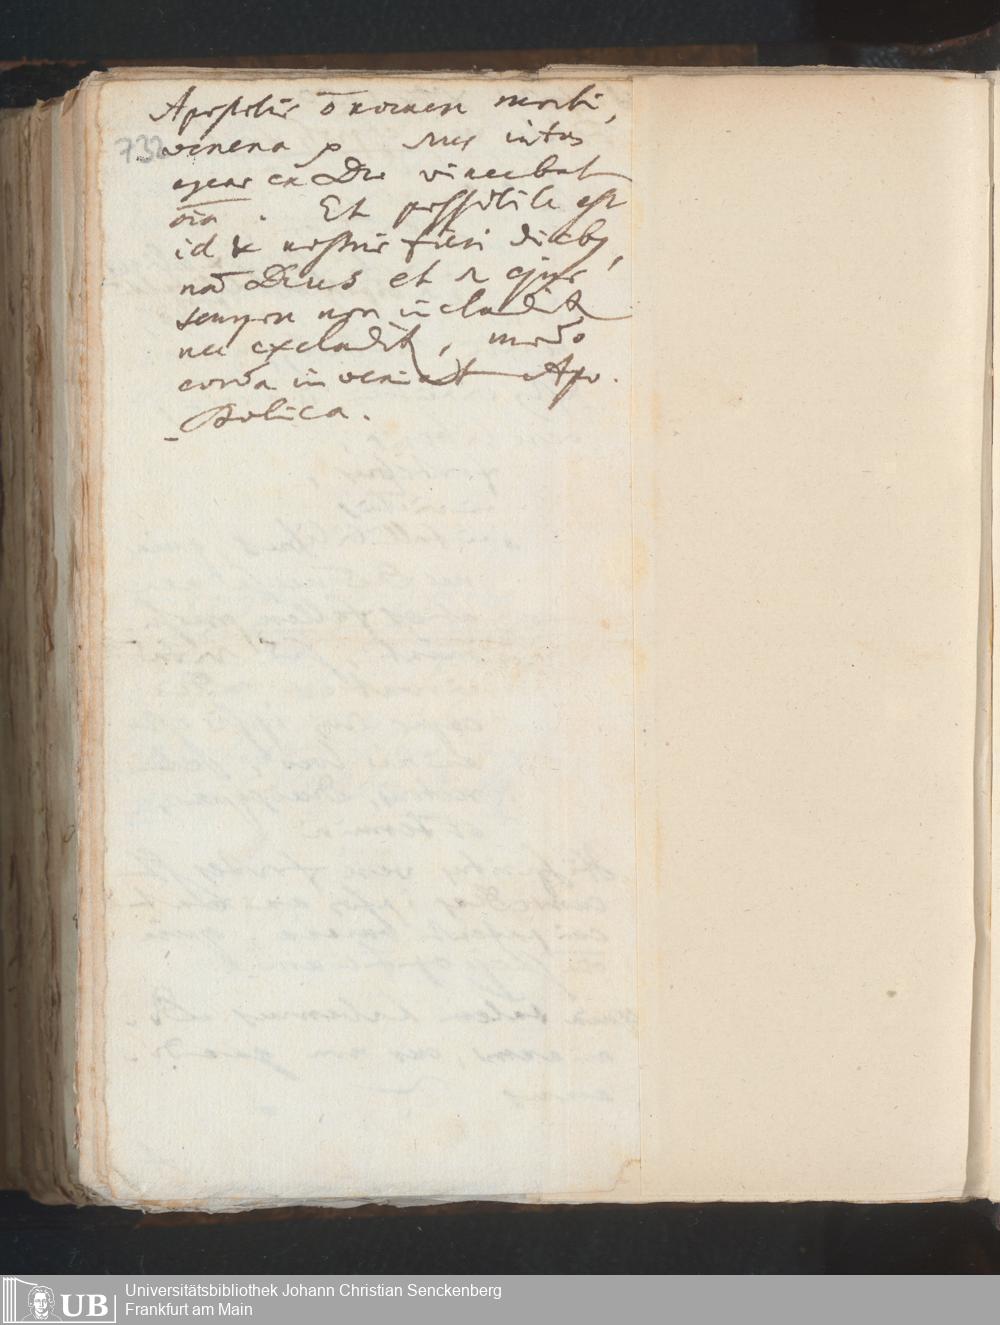 Apostolis õ nocuere morbi,
732
venena p intus
cū Deo vincebat
oīa. Et possibile est
id & nostris fieri dieb9,
nā Deus et ejus
semper non includit
nec excludit, modo
corda inveniat Apo-
stolica.
Universitätsbibliothek Johann Christian Senckenberg
Frankfurt am Main
UB